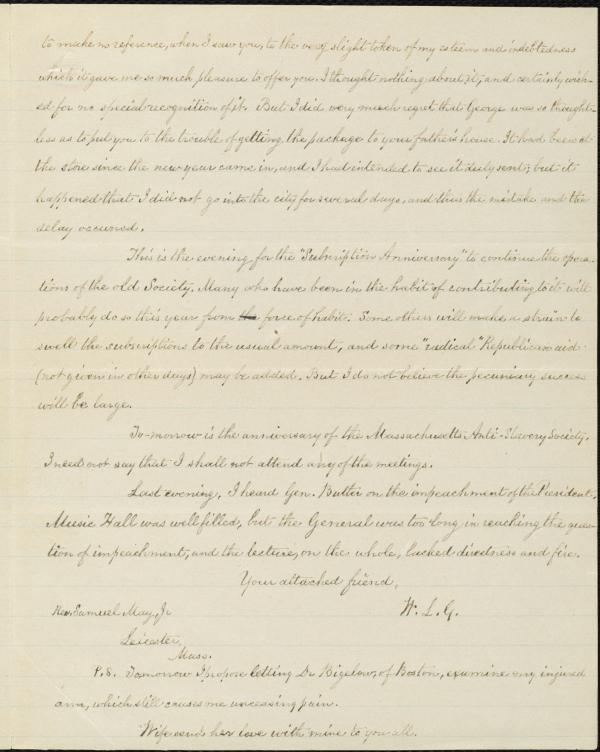 to make no reference, when I saw you, to the very slight token of my esteem and indebtedness
which it gave me so much pleasure to offer you. I thought nothing about it, and certainly wish-
ed for no special recognition of it. But I did very much regret that George was so thought-
less as to put you to the trouble of getting the package to your father's house. It had been at
the store since the new year came in, and I had intended to see it duly sent; but it
happened that I did not go into the city for several days, and thus the mistake and the
delay occurred.
This is the evening for the "Subscription Anniversary" to continue the opera-
tions of the old Society. Many who have been in the habit of contributing to it will
probably do so this year from the force of habit. Some others will make a strain to
swell the subscriptions to the usual amount, and some "radical" Republican aid
(not given in other days) may be added. But I do not believe the pecuniary success
will be large.
To-morrow is the anniversary of the Massachusetts Anti-Slavery Society.
I need not say that I shall not attend any of the meetings.
Last evening, I heard Gen. Butler on the impeachment of the President.
Music Hall was well filled, but the General was too long in reaching the ques-
tion of impeachment, and the lecture, on the whole, lacked directness and fire.
Your attached friend,
Rev. Samuel May, Jr. W. L. G.
Leicester,
Mass.
P.S. Tomorrow I propose letting Dr Bigelow, of Boston, examine my injured
arm, which still causes me unceasing pain.
Wife sends her love with mine to you all.